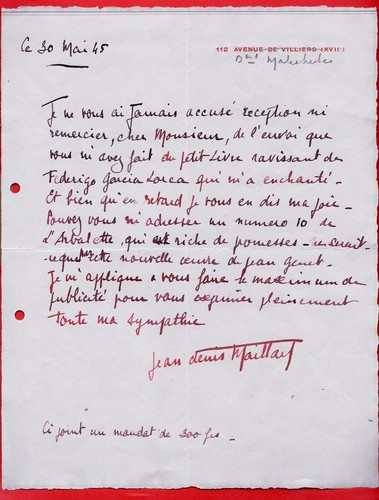 Ce 30 Mai 45
112 AVENUE DE VILLIERS (XVIIe)
Bd Malesherbes
Je ne vous ai jamais accusé reception ni
remercier, cher Monsieur, de l'envoi que
vous m'avez fait du petit Livre ravissant de
Federigo Garcia Lorca qui m'a enchanté -
Et bien qu'en retard je vous en dis ma joie -
Pouvez vous m'adresser un numero 10 de
L'Arbalette, qui est riche de promesses - ne serait-
ce que cette nouvelle œuvre de Jean Genet -
Je m'applique a vous faire le maximum de
publicité pour vous exprimer pleinement
toute ma sympathie
Jean Denis Maillart
Ci joint un mandat de 300 frs -